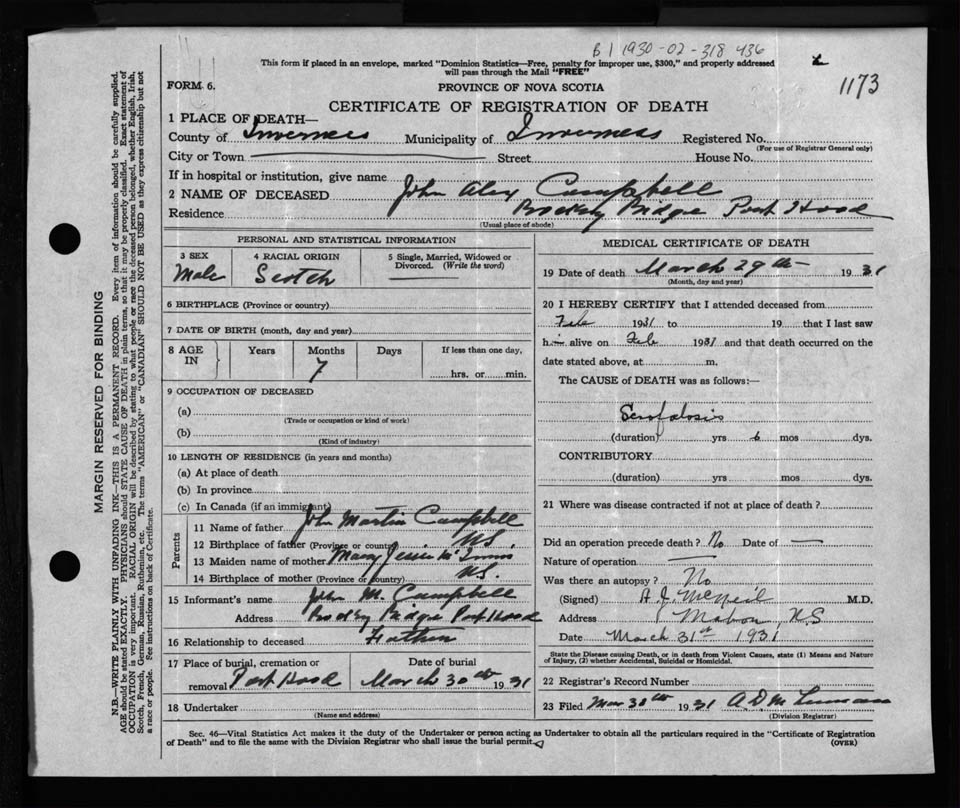 B 1 1930-02-318 436
1173
This form if placed in an envelope, marked "Dominion Statistics—Free, penalty for improper use, $300," and properly addressed
will pass through the Mail "FREE"
FORM 6.
PROVINCE OF NOVA SCOTIA
CERTIFICATE OF REGISTRATION OF DEATH
1 PLACE OF DEATH—
County of Inverness Municipality of Inverness Registered No.
(For use of Registrar General only)
City or Town Street House No.
If in hospital or institution, give name
2 NAME OF DECEASED John Alex Campbell
Residence Rocky Ridge Port Hood
(Usual place of abode)
PERSONAL AND STATISTICAL INFORMATION
3 SEX
Male
4 RACIAL ORIGIN
Scotch
5 Single, Married, Widowed or
Divorced. (Write the word)
6 BIRTHPLACE (Province or country)
7 DATE OF BIRTH (month, day and year)
8 AGE
IN
Years Months Days If less than one day,
7
hrs. or min.
9 OCCUPATION OF DECEASED
(a)
(Trade or occupation or kind of work)
(b)
(Kind of industry)
10 LENGTH OF RESIDENCE (in years and months)
(a) At place of death
(b) In province
(c) In Canada (if an immigrant)
Parents
11 Name of father John Martin Campbell
12 Birthplace of father (Province or country) N.S.
13 Maiden name of mother Mary Jessie
14 Birthplace of mother (Province or country) N.S.
15 Informant's name John M. Campbell
Address Rocky Ridge Port Hood
16 Relationship to deceased Father
17 Place of burial, cremation or
removal Port Hood
Date of burial
March 30th 1931
18 Undertaker
(Name and address)
MEDICAL CERTIFICATE OF DEATH
19 Date of death March 29th 1931
(Month, day and year)
20 I HEREBY CERTIFY that I attended deceased from
Feb 1931 to 19 that I last saw
h alive on Feb 1931 and that death occurred on the
date stated above, at m.
The CAUSE of DEATH was as follows:—
(duration) yrs 6 mos dys.
CONTRIBUTORY
(duration) yrs mos dys.
21 Where was disease contracted if not at place of death?
Did an operation precede death? No Date of —
Nature of operation
Was there an autopsy? No
(Signed) A. J. McNeil M.D.
Address Mabou, N.S
Date March 31st 1931
State the Disease causing Death, or in death from Violent Causes, state (1) Means and Nature
of Injury, (2) whether Accidental, Suicidal or Homicidal.
22 Registrar's Record Number
23 Filed Mar 30th 1931
(Division Registrar)
Sec. 46—Vital Statistics Act makes it the duty of the Undertaker or person acting as Undertaker to obtain all the particulars required in the "Certificate of Registration
of Death" and to file the same with the Division Registrar who shall issue the burial permit.
(OVER)
MARGIN RESERVED FOR BINDING
N.B.—WRITE PLAINLY WITH UNFADING INK—THIS IS A PERMANENT RECORD. Every item of information should be carefully supplied.
AGE should be stated EXACTLY. PHYSICIANS should STATE CAUSE OF DEATH in plain terms, so that it may be properly classified. Exact statement of
OCCUPATION is very important. RACIAL ORIGIN will be described by stating to what people or race the deceased person belonged, whether English, Irish,
Scotch, French, German, Russian, Ruthenian, etc. The terms "AMERICAN" or "CANADIAN" SHOULD NOT BE USED as they express citizenship but not
a race or people. See instructions on back of Certificate.